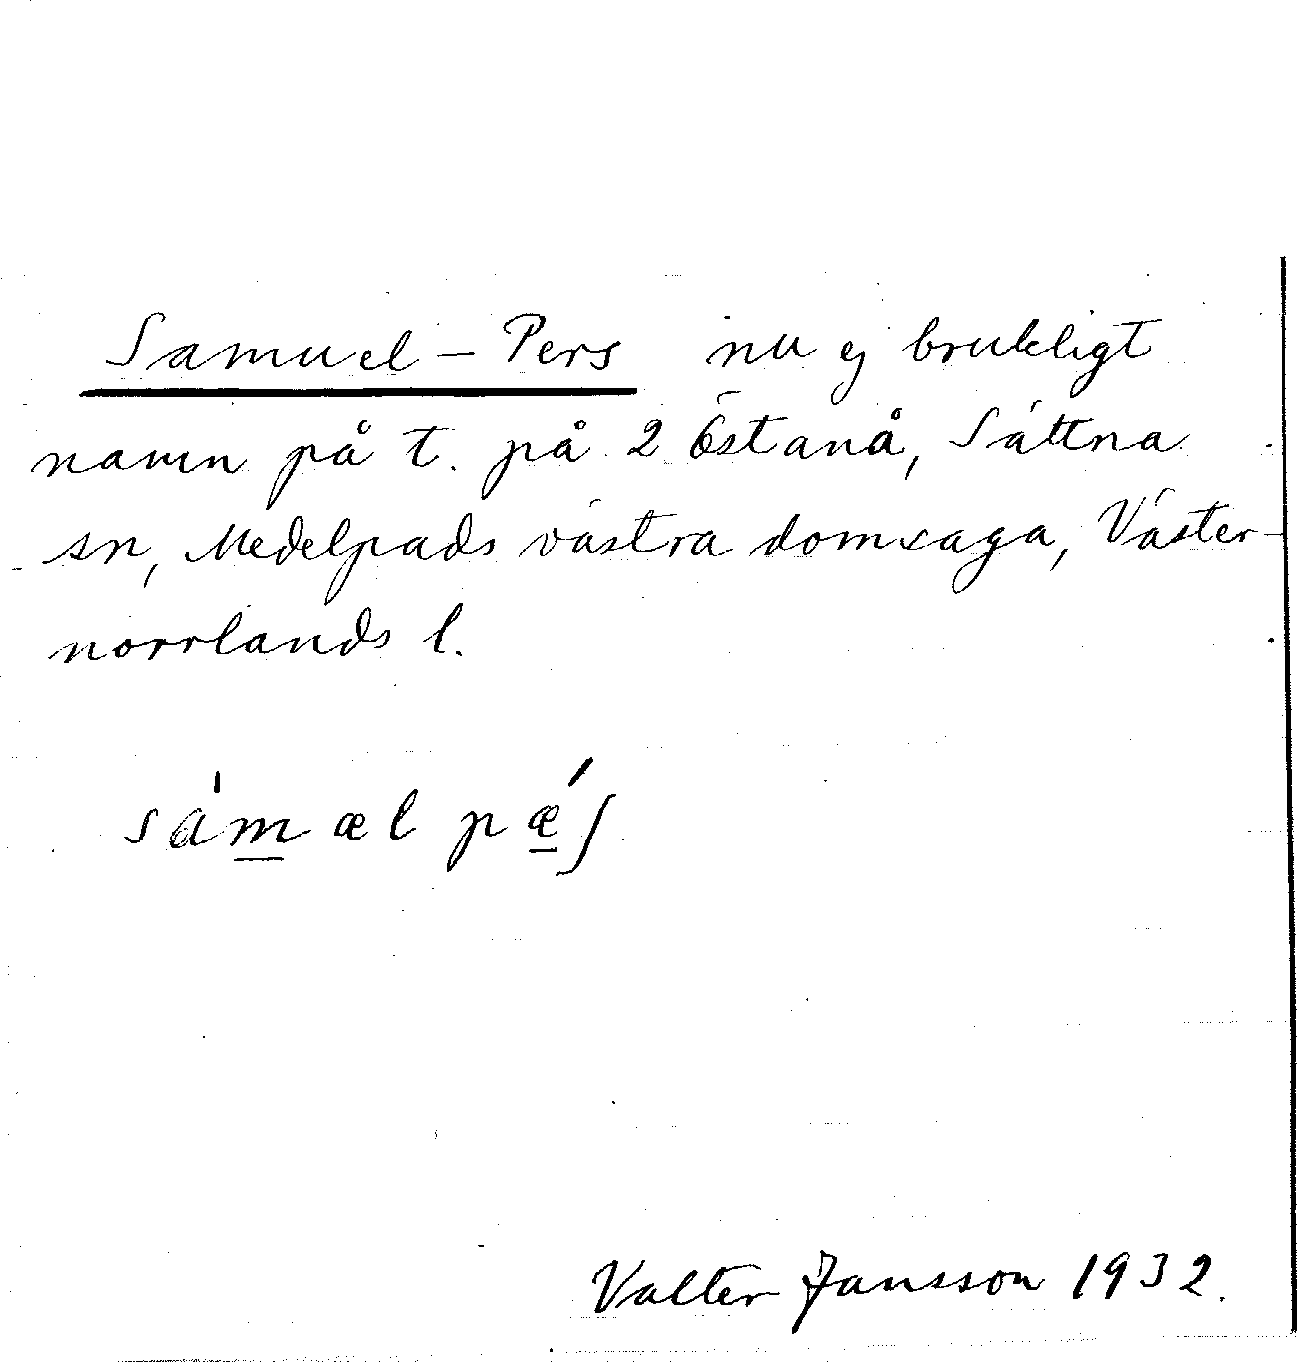 Samuel-Pers nu ej brukligt
namn på t. på 2 Östanå, Sättna
sn, Medelpads västra domsaga, Väster-
norrlands l.
sám̲æl pǽ̲ʃ
Valter Jansson 1932.